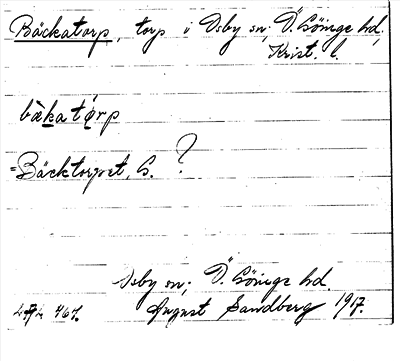 Bäckatorp, torp i Osby sn, Ö. Göinge hd,
Krist. l.
bàkatórp
=Bäcktorpet, G. ?
Osby sn; Ö. Göinge hd.
August Sandberg 1917.